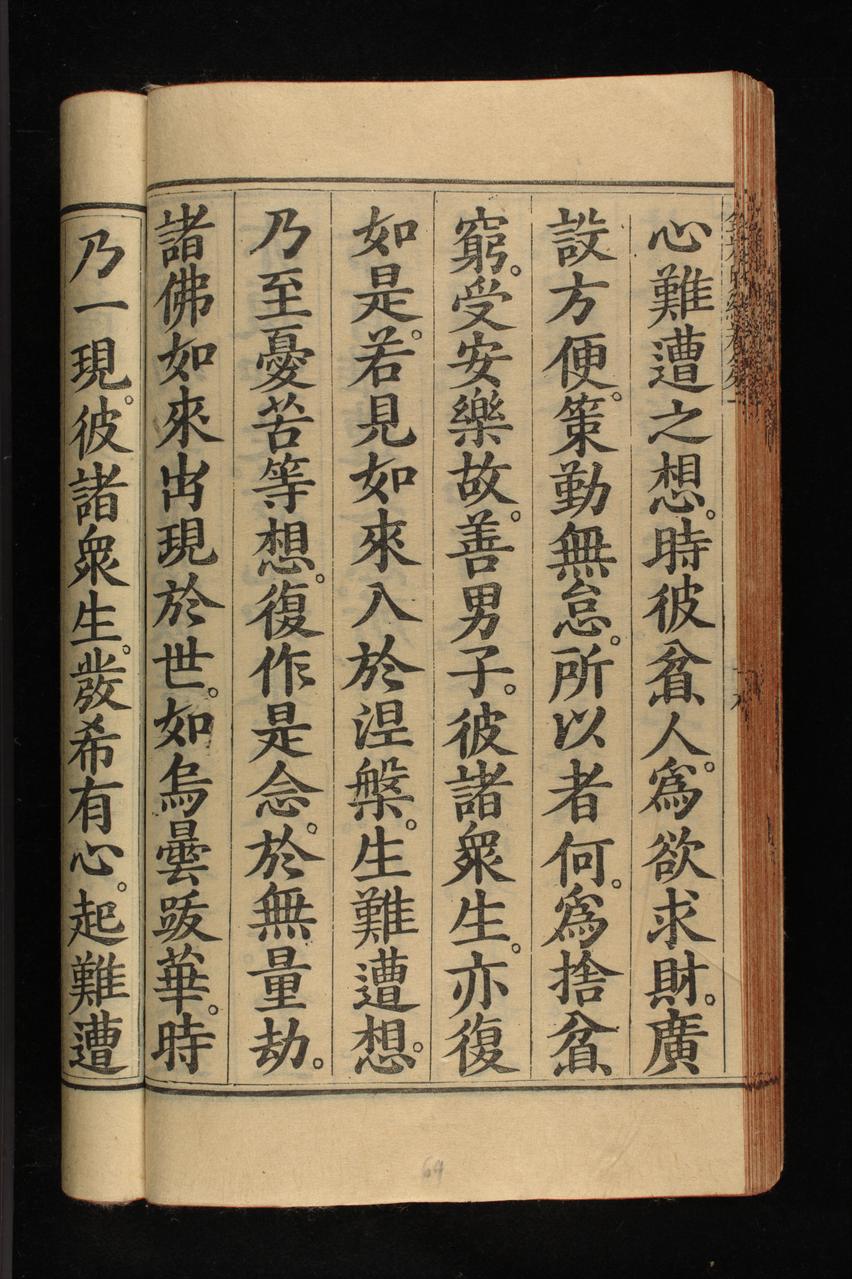 心難遭之想。時彼貧人。爲欲求財。廣
設方便。策勤無怠。所以者何。爲捨貧
窮。受安樂故。善男子。彼諸衆生。亦復
如是。若見如來入於涅槃。生難遭想。
乃至憂苦等想。復作是念。於無量劫。
諸佛如來出現於世。如烏曇跋華。時
乃一現。彼諸衆生。發希有心。起難遭
64